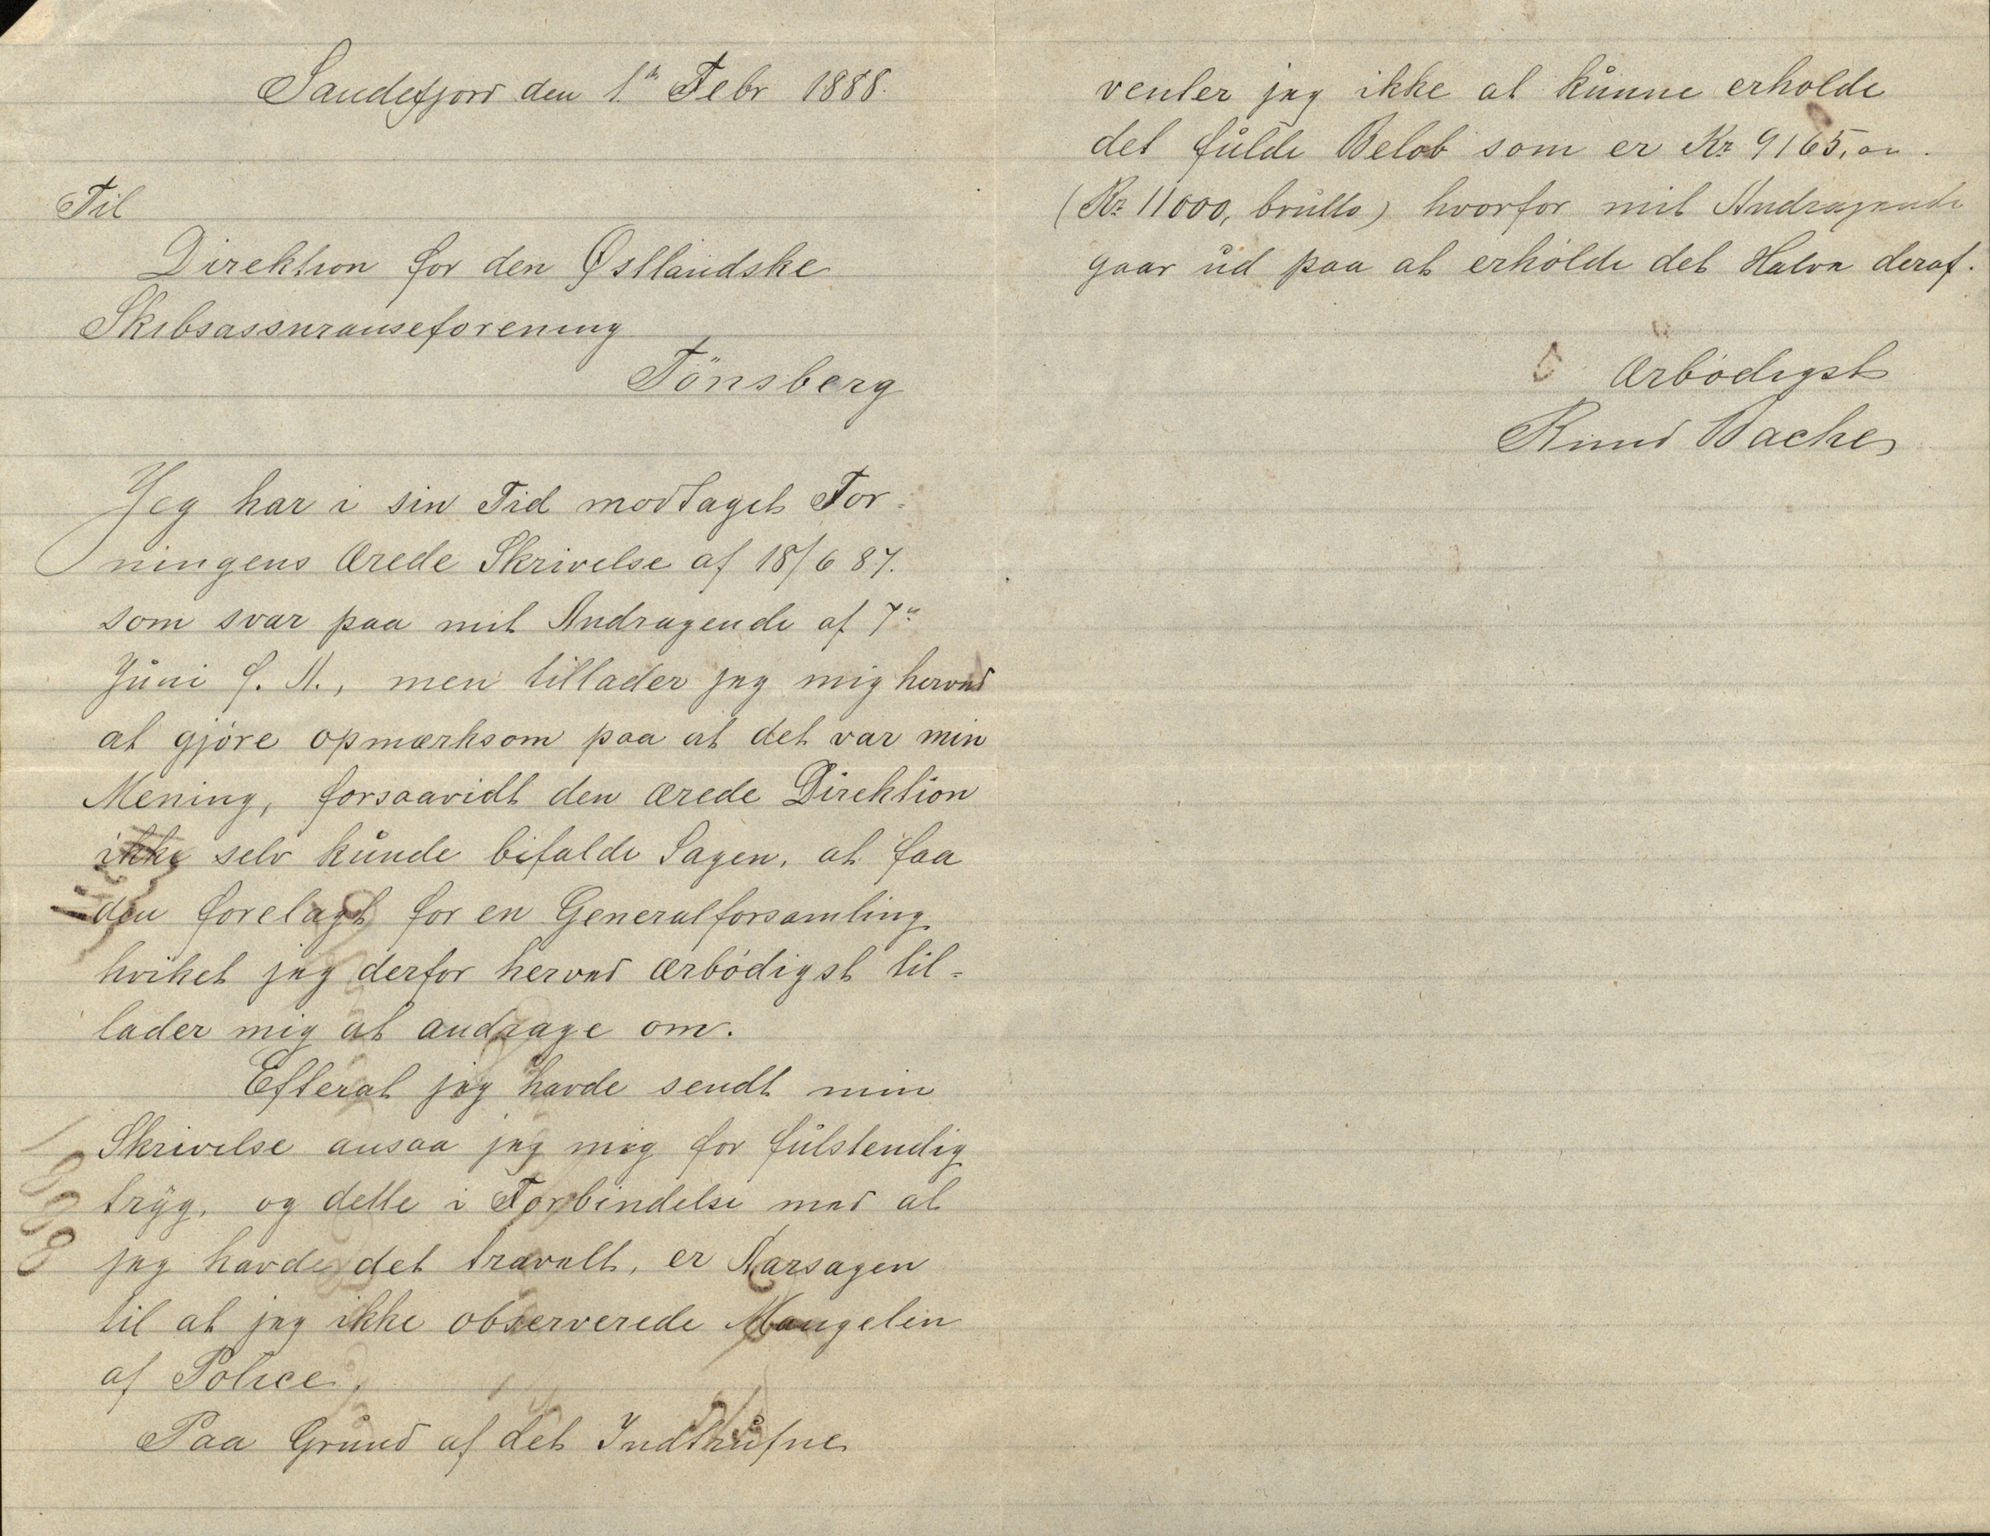 Sandefjord den 1.ste Febr 1888.
Til
Direktion for den Østlandske
Skibsassuranseforening
Tönsberg
Jeg har i sin Tid modtaget For-
ningens ærede Skrivelse af 18/6 87.
som svar paa mit Andragende af 7de
Juni f. A., men tillader jeg mig herved
at gjöre opmærksom paa at det var min
Mening, forsaavidt den ærede Direktion
ikke selv kunde bifalde Sagen, at faa
den forelagt for en Generalforsamling
hvilket jeg derfor herved ærbödigst til-
lader mig at andrage om.
Efterat jeg havde sendt min
Skrivelse ansaa jeg mig for fulstendig
tryg, og dette i Forbindelse med at
jeg havde det travelt, er Aarsagen
til at jeg ikke observerede Mangelen
af Police.
Paa Grund af det Indtrufne
venter jeg ikke at kunne erholde
det fulde Belöb som er Kr 9165,00.
(Kr. 11000, brutto) hvorfor mit Andragende
gaar ud paa at erholde det Halve deraf.
Ærbödigst
Knud Bache
1888